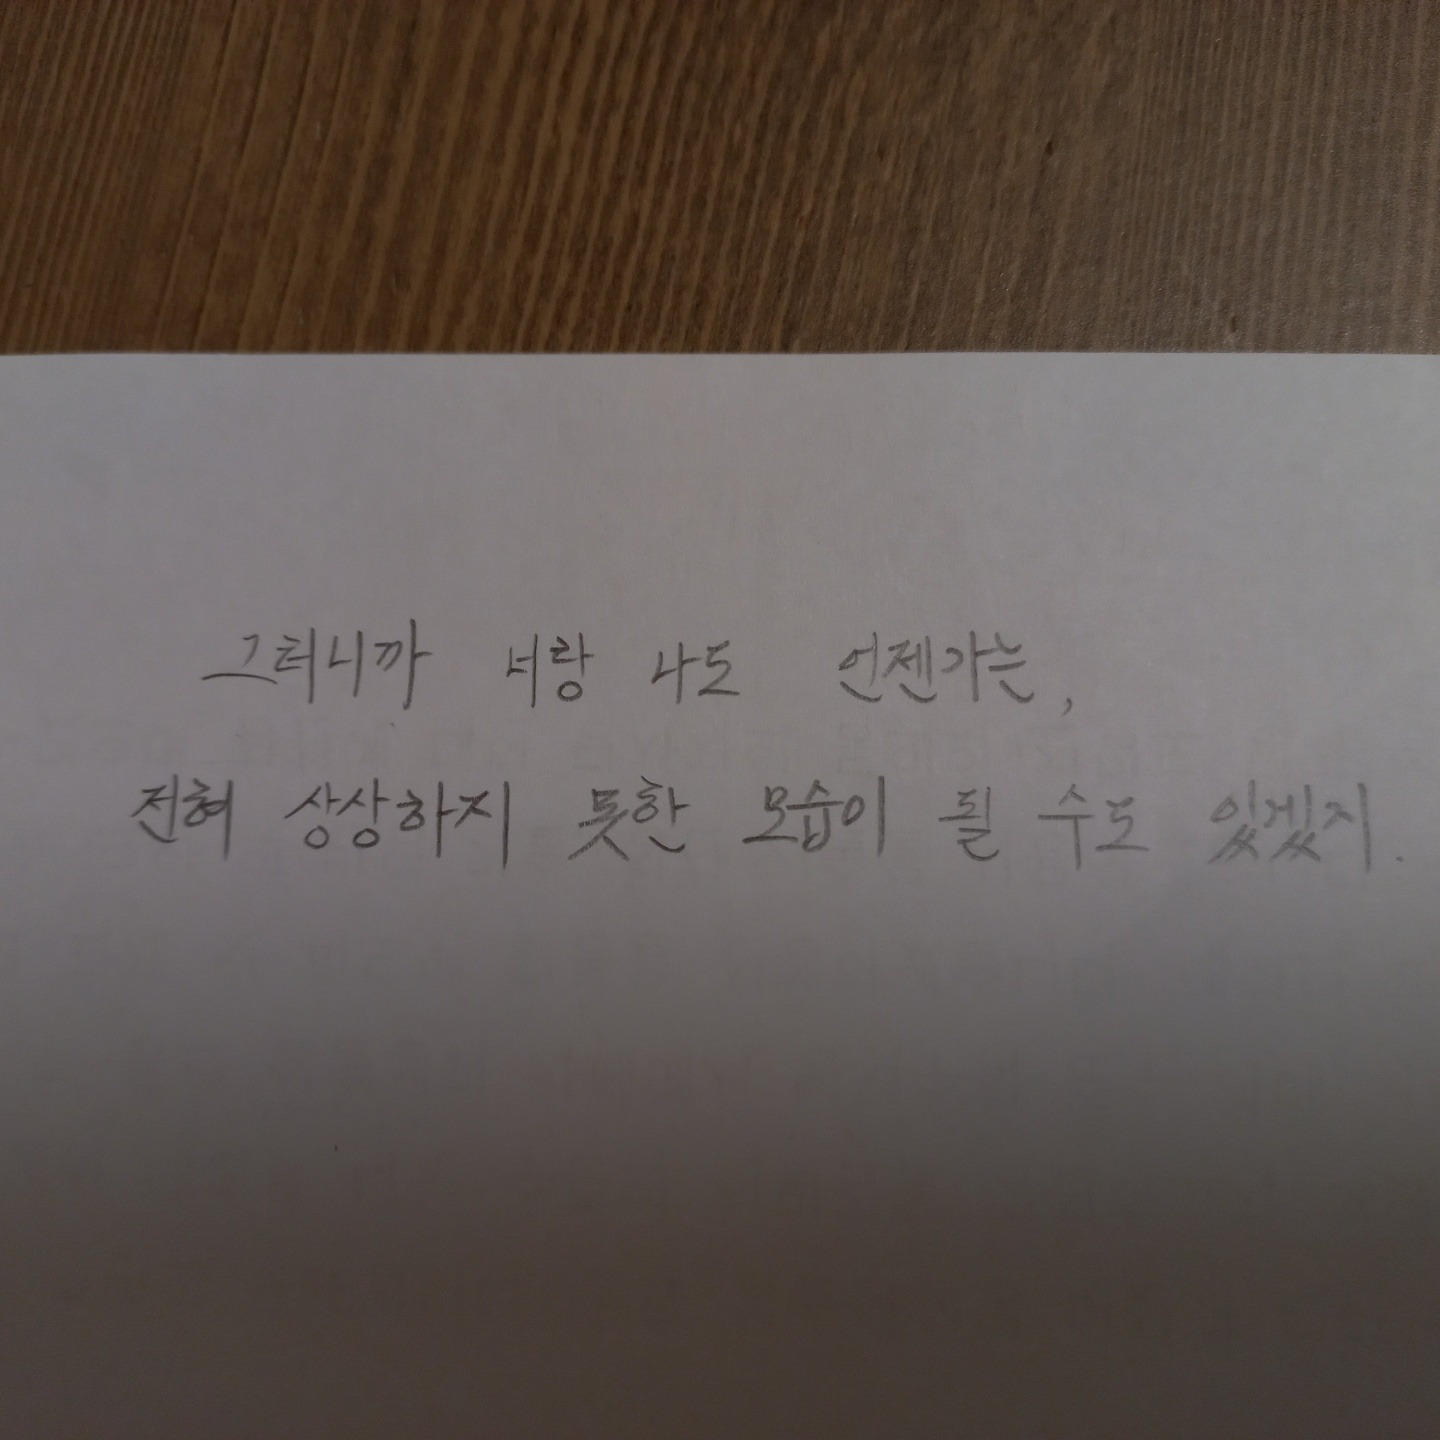 그러니까 너랑 나도 언젠가는,
전혀 상상하지 못한 모습이 될 수도 있겠지.